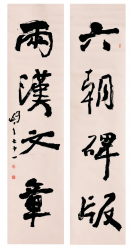 六朝碑版
兩漢文章